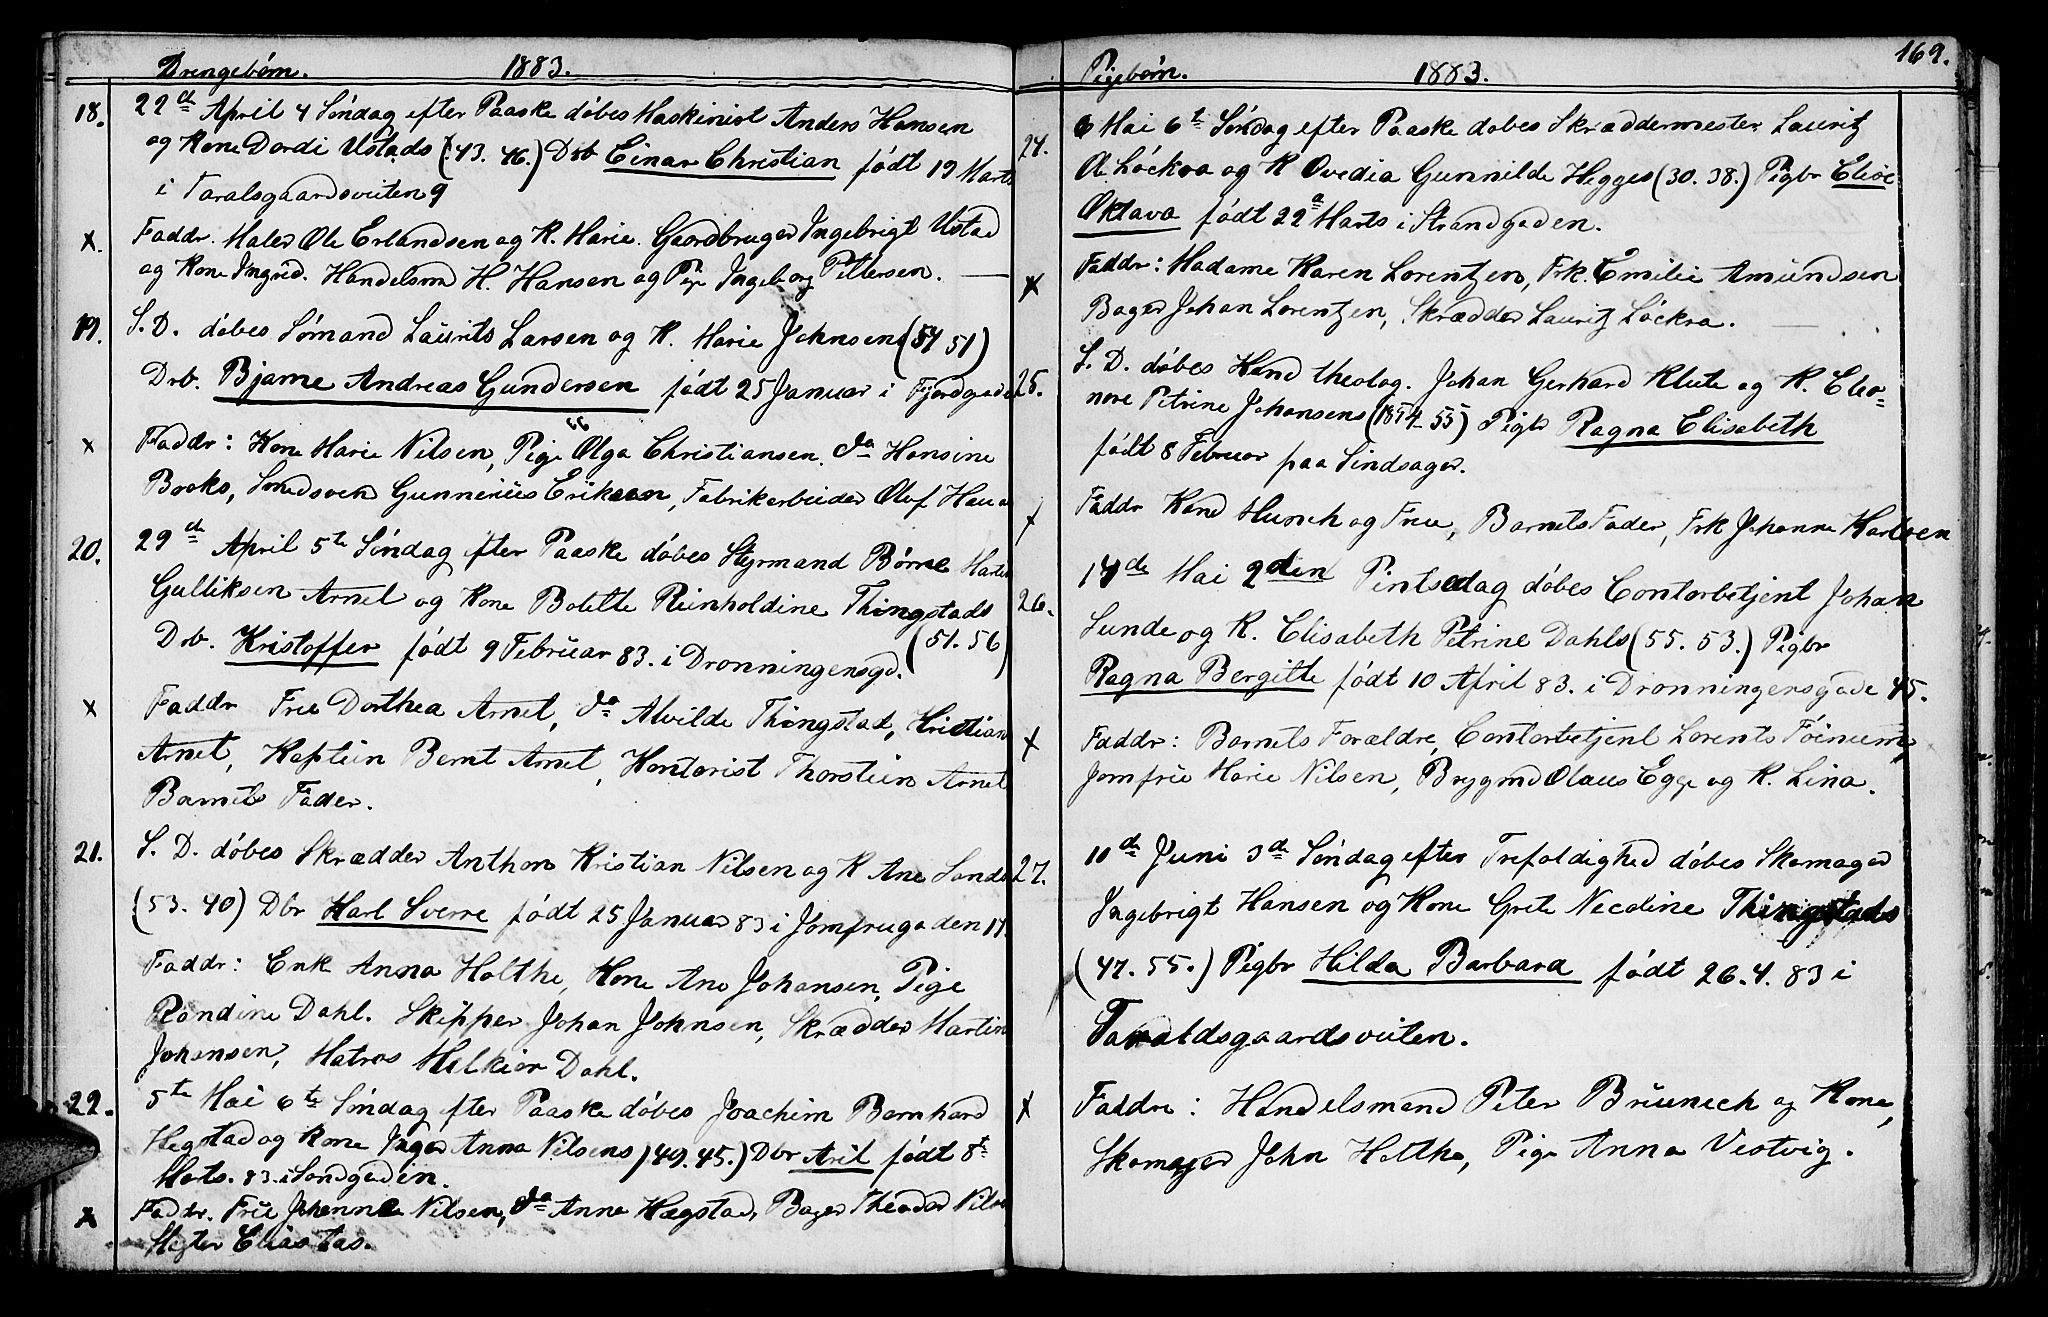 Drengebørn. 1883.
18. 22de April 4 Søndag efter Paaske døbes Maskinist Anders Hansen
og Kone Dordi Ustads (43. 46.) Drb Einar Christian født 19 Marts
i Taralsgaardsveiten 9
x. Faddr. Maler Ole Erlandsen og K. Marie. Gaardbruger Ingebrigt Ustad
og Kone Ingrid. Handelsmd H. Hansen og Pige Ingeborg Pettersen.
19. S. D. døbes Sømand Laurits Larsen og K. Marie Johnsens (54 51)
Drb. Bjarne Andreas Gundersen født 25 Januar i Fjordgade
x Faddr: Kone Marie Nilsen, Pige Olga Christiansen. do Hansine
Brocks, Smedsvend Gunnerius Eriksen, Fabrikarbeider Oluf
20. 29de April 5te Søndag efter Paaske døbes Styrmand Børre Martin
Gulliksen Arnet og Kone Bolette Reinholdine Thingstads
Drb. Kristoffer født 9 Februar 83. i Dronningensgd. (51. 56)
x Faddr Frue Dorthea Arnet, da Alvilde Thingstad, Kristian
Arnet, Kaptein Bernt Arnet, Kontorist Thorstein Arnet
Barnets Fader.
21. S. D. døbes Skrædder Anthon Kristian Nilsen og K Ane
(53. 40) Dbr Karl Sverre født 25 Januar 83 i Jomfrugaden 17
Faddr: Enk Anna Holthe, Kone Ane Johansen, Pige
Randine Dahl. Skipper Johan Johnsen, Skrædder Martin
Johansen, Matros Melkior Dahl.
22. 5te Mai 6te Søndag efter Paaske døbes Joachim Bernhard
Hegstad og Kone Inger Anna Nilsens (49. 45.) Dbr Aril født 8te
Marts. 83. i Sandgaden.
x Faddr. Frue Johanne Nilsen, da Anna Hægstad, Bager Theodor Nilsen
Elias Aas.
169.
Pigebørn. 1883.
24. 6 Mai 6te Søndag efter Paaske døbes Skræddermester Lauritz
Ole Løckra og K Ovedia Gunnilde Hegges (30. 38.) Pigbr Elise
Oktava født 22de Marts i Strandgaden.
x Faddr: Madame Karen Lorentzen, Frk. Emilie Amundsen
Bager Johan Lorentzen, Skrædder Lauritz Løckra.
25. S. D. døbes Kand theolog. Johan Gerhard Klute og K. Eleo=
nore Petrine Johansens (1854-55) Pigbr Ragna Elisabeth
født 8 Februar paa Lindsager.
x Faddr Kand Munch og Frue, Barnets Fader, Frk Johanne Karlsen
26. 14de Mai 2den Pintsedag døbes Contorbetjent Johan
Sunde og K. Elisabeth Petrine Dahls (55. 53.) Pigbr
Ragna Bergitte født 10 April 83. i Dronningensgade 45.
x Faddr: Barnets Forældre, Contorbetjent Lorents Føinum,
Jomfrue Marie Nilsen, Brygmd Olaus Egge og K. Lina.
27. 10de Juni 3de Søndag efter Trefoldighed døbes Skomager
Ingebrigt Hansen og Kone Grete Necoline Thingstads
(47. 55.) Pigbr Hilda Barbara født 26.4.83 i
Taraldsgaardsveiten.
x Faddre: Handelsmand Peter Briunech og Kone,
Skomager John Holthe, Pige Anna Vestvig.